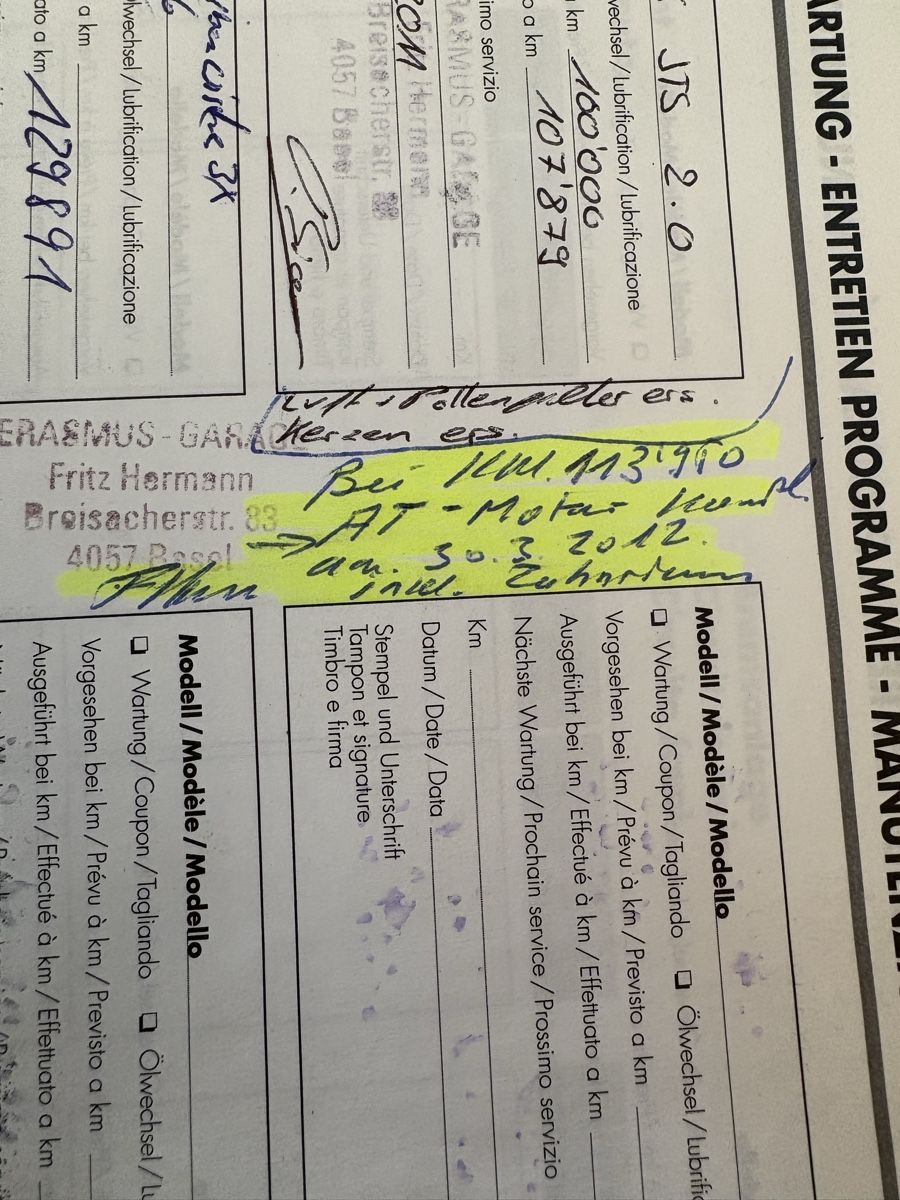 ARTUNG - ENTRETIEN PROGRAMME - MANUTENZ
JTS 2.0
wechsel / Lubrification / Lubrificazione
km 100'000
o a km 107'879
imo servizio
ERASMUS - GARAGE
Fritz Hermann
Breisacherstr. 83
4057 Basel
2011
Luft + Pollenfilter ers.
Kerzen ers.
Bei KM. 113'950
AT - Motor Kompl.
→ am. 30.3.2012.
inkl. Zahnriemen
ERASMUS - GARAGE
Fritz Hermann
Breisacherstr. 83
4057 Basel
3x
Ölwechsel / Lubrification / Lubrificazione
a km
ato a km 129891
Modell / Modèle / Modello
❑ Wartung / Coupon / Tagliando ❑ Ölwechsel / Lubrific
Vorgesehen bei km / Prévu à km / Previsto a km
Ausgeführt bei km / Effectué à km / Effettuato a km
Nächste Wartung / Prochain service / Prossimo servizio
Km
Datum / Date / Data
Stempel und Unterschrift
Tampon et signature
Timbro e firma
Modell / Modèle / Modello
❑ Wartung / Coupon / Tagliando ❑ Ölwechsel / Lu
Vorgesehen bei km / Prévu à km / Previsto a km
Ausgeführt bei km / Effectué à km / Effettuato a km